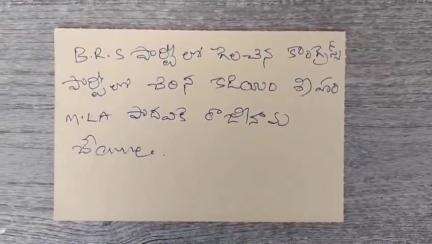 B.R.S పార్టీ లో గెలిచిన కాంగ్రెస్
పార్టీ లో చేరిన కడియం శ్రీహరి
M.LA పదవికి రాజీనామ
చేయాలి.